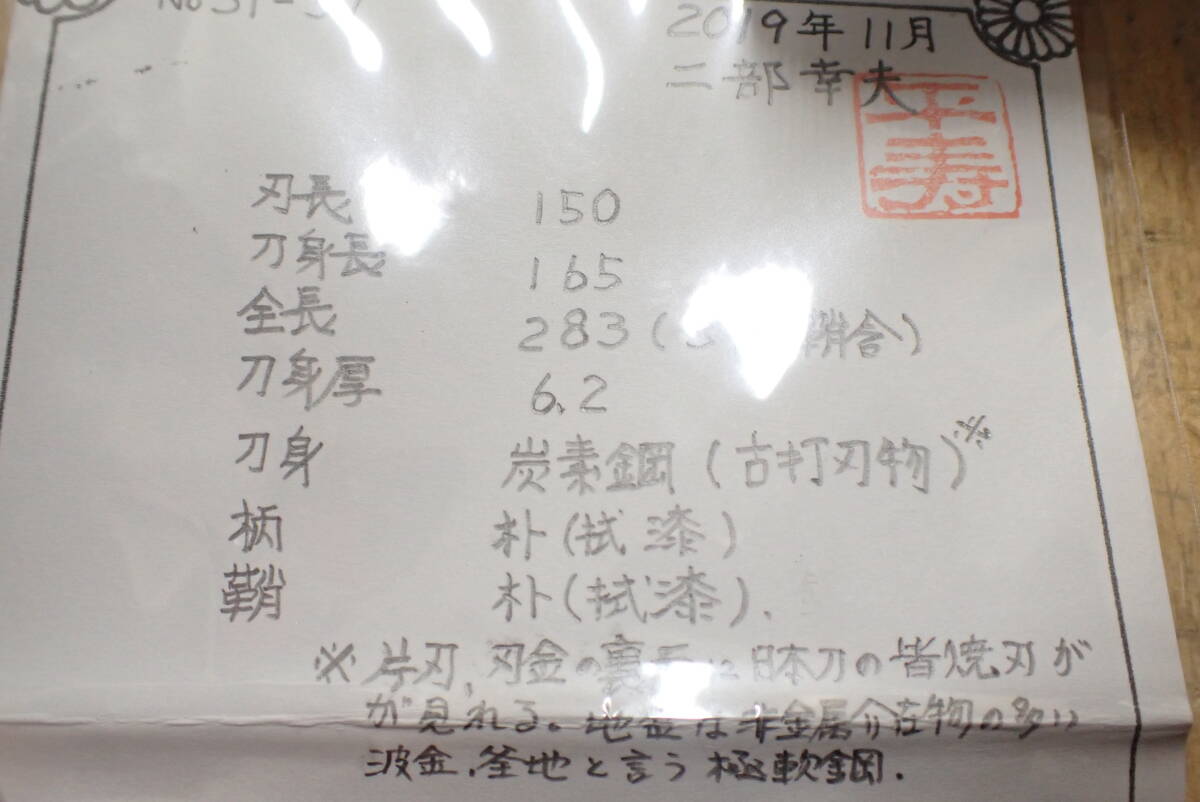 No 31-
2019年11月
二部幸夫
平寿
刃長 150
刀身長 165
全長 283 ( 鞘含)
刀身厚 6.2
刀身 炭素鋼(古打刃物)※
柄 朴(拭漆)
鞘 朴(拭漆).
※片刃、刃金の裏 に日本刀の皆焼刃が
が見れる。地金は非金属介在物の多い
波金、釜地と言う極軟鋼.